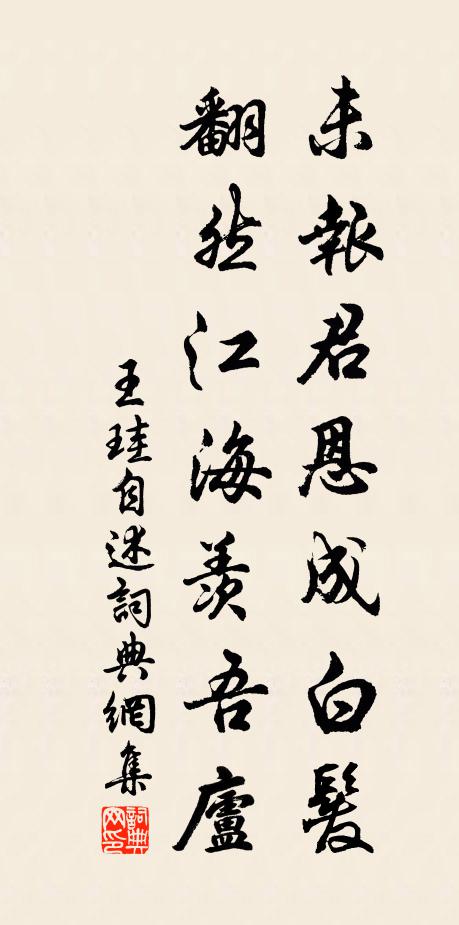 未報君恩成白髮
翻然江海羨吾廬
王珪自述詞典網集
詞典网印